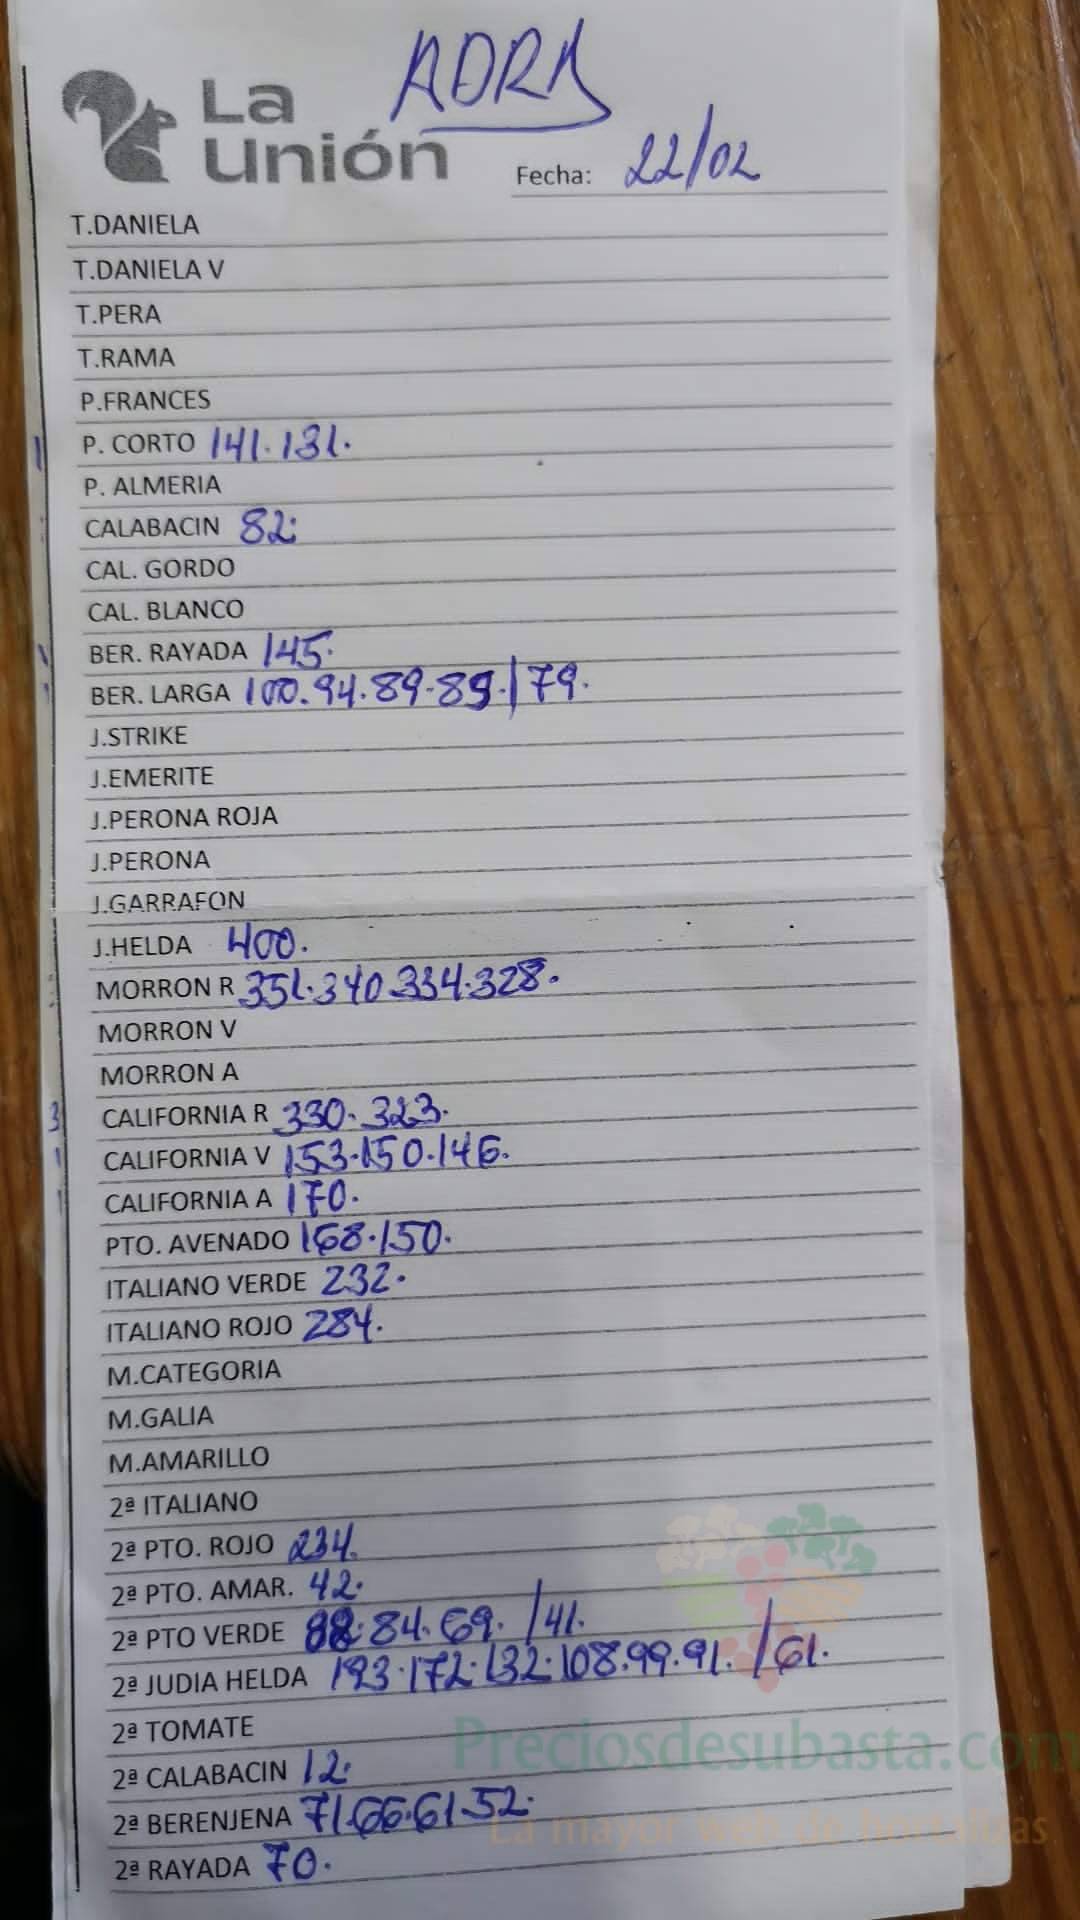 ADRA
La
Unión
Fecha: 22/02
T.DANIELA
T.DANIELA V
T.PERA
T.RAMA
P.FRANCES
P. CORTO 141.131.
P. ALMERIA
CALABACIN 82.
CAL. GORDO
CAL. BLANCO
BER. RAYADA 145.
BER. LARGA 100.94.89.89./79.
J.STRIKE
J.EMERITE
J.PERONA ROJA
J.PERONA
J.GARRAFON
J.HELDA 400.
MORRON R 351.340.334.328.
MORRON V
MORRON A
CALIFORNIA R 330.323.
CALIFORNIA V 153.150.146.
CALIFORNIA A 170.
PTO. AVENADO 168.150.
ITALIANO VERDE 232.
ITALIANO ROJO 284.
M.CATEGORIA
M.GALIA
M.AMARILLO
2ª ITALIANO
2ª PTO. ROJO 234.
2ª PTO. AMAR. 42.
2ª PTO VERDE 84.69./41.
2ª JUDIA HELDA 193.172.132.108.99.91./61.
2ª TOMATE
2ª CALABACIN 12.
2ª BERENJENA 71.66.61.52.
2ª RAYADA 70.
Preciosdesubasta.com
La mayor web de hortalizas